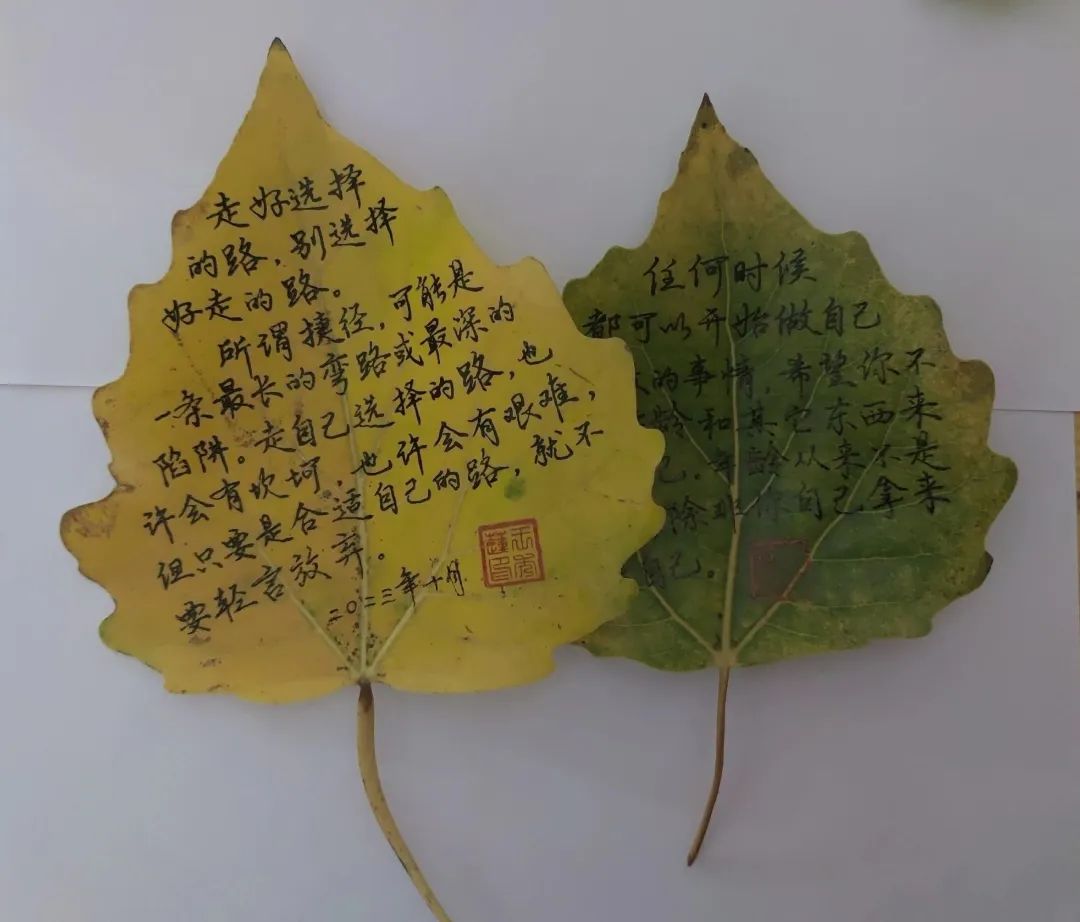 走好选择
的路，别选择
好走的路。
所谓捷径，可能是
一条最长的弯路或最深的
陷阱。走自己选择的路，也
许会有坎坷，也许会有艰难，
但只要是合适自己的路，就不
要轻言放弃。
二〇二三年十月
任何时候
都可以开始做自己
的事情，希望你不
龄和其它东西来
己，年龄从来不是
除非你自己拿来
自己。